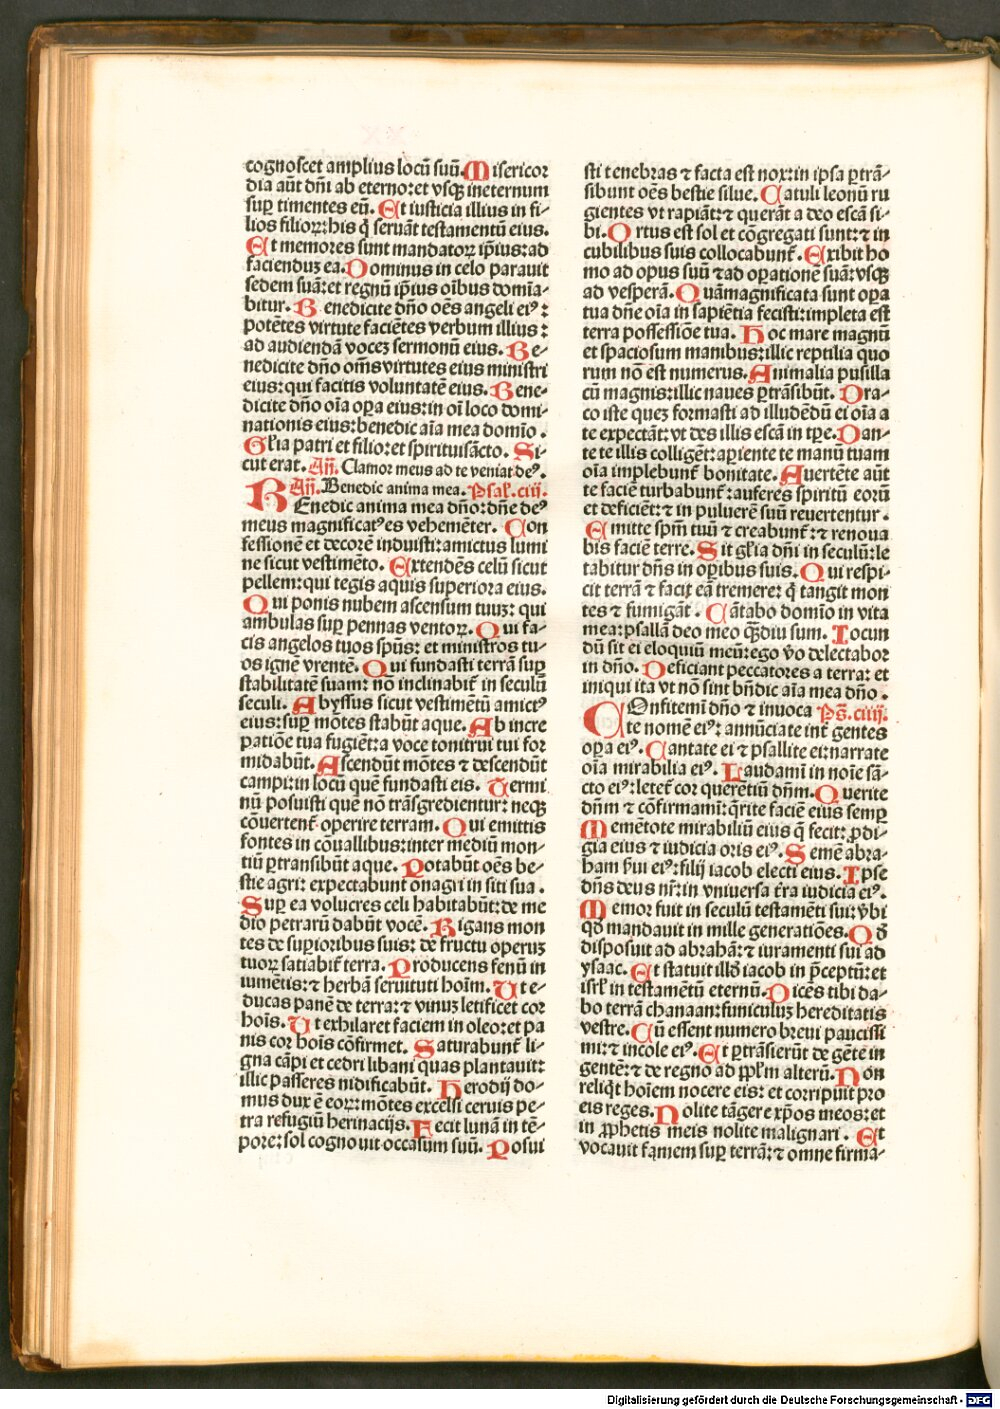 cognoscet amplius locū suū. Misericor
dia aūt dn̄i ab eterno: et vsqꝫ ineternum
suꝑ timentes eū. Et iusticia illius in fi-
lios filioꝝ: his q̄ seruāt testamentū eius.
Et memores sunt mandatoꝝ ip̄ius: ad
facienduꝫ ea. Dominus in celo parauit
sedem suā: et regnū ip̄ius oībus domīa-
bitur. Benedicite dn̄o oēs angeli eiꝰ:
potētes virtute faciētes verbum illius:
ad audiendā voceꝫ sermonū eius. Be-
nedicite dn̄o om̄s virtutes eius ministri
eius: qui facitis voluntatē eius. Bene-
dicite dn̄o oīa oꝑa eius: in oī loco domi-
nationis eius: benedic aīa mea domīo.
Gl̄ia patri et filio: et spirituisācto. Si-
cut erat. Añ. Clamor meus ad te veniat deꝰ.
Añ. Benedic anima mea. Psal. ciij.
BEnedic anima mea dn̄o: dn̄e deꝰ
meus magnificatꝰ es vehemēter. Con
fessionē et decorē induisti: amictus lumi
ne sicut vestimēto. Extendēs celū sicut
pellem: qui tegis aquis superiora eius.
Qui ponis nubem ascensum tuuꝫ: qui
ambulas suꝑ pennas ventoꝝ. Qui fa-
cis angelos tuos sp̄us: et ministros tu-
os ignē vrentē. Qui fundasti terrā suꝑ
stabilitatē suam: nō inclinabit̄ in seculū
seculi. Abyssus sicut vestimētū amictꝰ
eius: suꝑ mōtes stabūt aque. Ab incre
patiōe tua fugiēt: a voce tonitrui tui for
midabūt. Ascendūt mōtes ⁊ descendūt
campi: in locū quē fundasti eis. Termi
nū posuisti quē nō trāsgredientur: neqꝫ
cōuertent̄ operire terram. Qui emittis
fontes in cōuallibus: inter mediū mon-
tiū ꝑtransibūt aque. Potabūt oēs be-
stie agri: expectabunt onagri in siti sua.
Suꝑ ea volucres celi habitabūt: de me
dio petrarū dabūt vocē. Rigans mon
tes de suꝑioribus suis: de fructu operuꝫ
tuoꝝ satiabit̄ terra. Producens fenū in
iumētis: ⁊ herbā seruituti hoīm. Ut e-
ducas panē de terra: ⁊ vinuꝫ letificet cor
hoīs. Ut exhilaret faciem in oleo: et pa
nis cor hoīs cōfirmet. Saturabunt̄ li-
gna cāpi et cedri libani quas plantauit:
illic passeres nidificabūt. Herodij do-
mus dux ē eoꝝ: mōtes excelsi ceruis pe-
tra refugiū herinacijs. Fecit lunā in tē-
pore: sol cognouit occasum suū. Posui
sti tenebras ⁊ facta est nox: in ipsa ꝑtrā-
sibunt oēs bestie silue. Catuli leonū ru
gientes vt rapiāt: ⁊ querāt a deo escā si-
bi. Ortus est sol et cōgregati sunt: ⁊ in
cubilibus suis collocabunt̄. Exibit ho
mo ad opus suū ⁊ ad oꝑationē suā: vsqꝫ
ad vesperā. Quāmagnificata sunt oꝑa
tua dn̄e oīa in sapiētia fecisti: impleta est
terra possessiōe tua. Hoc mare magnū
et spaciosum manibus: illic reptilia quo
rum nō est numerus. Animalia pusilla
cū magnis: illic naues ꝑtrāsibūt. Dra-
co iste queꝫ formasti ad illudēdū ei oīa a
te expectāt: vt des illis escā in tꝑe. Dan-
te te illis colligēt: aꝑiente te manū tuam
oīa implebunt̄ bonitate. Auertēte aūt
te faciē turbabunt̄: auferes spiritū eorū
et deficiēt: ⁊ in puluerē suū reuertentur.
Emitte sp̄m tuū ⁊ creabunt̄: ⁊ renoua
bis faciē terre. Sit gl̄ia dn̄i in seculū: le
tabitur dn̄s in oꝑibus suis. Qui respi-
cit terrā ⁊ facit eā tremere: q̄ tangit mon
tes ⁊ fumigāt. Cātabo domīo in vita
mea: psallā deo meo qꝫdiu sum. Iocun
dū sit ei eloquiū meū: ego v̄o delectabor
in dn̄o. Deficiant peccatores a terra: et
iniqui ita vt nō sint bn̄dic aīa mea dn̄o.
COnfitemī dn̄o ⁊ inuoca Ps̄. ciiij.
te nomē eiꝰ: annūciate int̄ gentes
oꝑa eiꝰ. Cantate ei ⁊ psallite ei: narrate
oīa mirabilia eiꝰ. Laudamī in noīe sā-
cto eiꝰ: letet̄ cor querētiū dn̄m. Querite
dn̄m ⁊ cōfirmamī: q̄rite faciē eius semꝑ
Memētote mirabiliū eius q̄ fecit: ꝓdi-
gia eius ⁊ iudicia oris eiꝰ. Semē abra-
ham ẜui eiꝰ: filij iacob electi eius. Ipse
dn̄s deus nr̄: in vniuersa t̄ra iudicia eiꝰ.
Memor fuit in seculū testamēti sui: v̄bi
qd̄ mandauit in mille generatiōes. Qd̄
disposuit ad abrahā: ⁊ iuramenti sui ad
ysaac. Et statuit illd̄ iacob in p̄ceptū: et
isrl̄ in testamētū eternū. Dicēs tibi da-
bo terrā chanaan: funiculuꝫ hereditatis
vestre. Cū essent numero breui paucissi
mi: ⁊ incole eiꝰ. Et ꝑtrāsierūt de gēte in
gentē: ⁊ de regno ad ppl̄m alterū. Non
reliq̇t hoīem nocere eis: et corripuit pro
eis reges. Nolite tāgere xp̄os meos: et
in ꝓphetis meis nolite malignari. Et
vocauit famem suꝑ terrā: ⁊ omne firma-
Digitalisierung gefördert durch die Deutsche Forschungsgemeinschaft - DFG